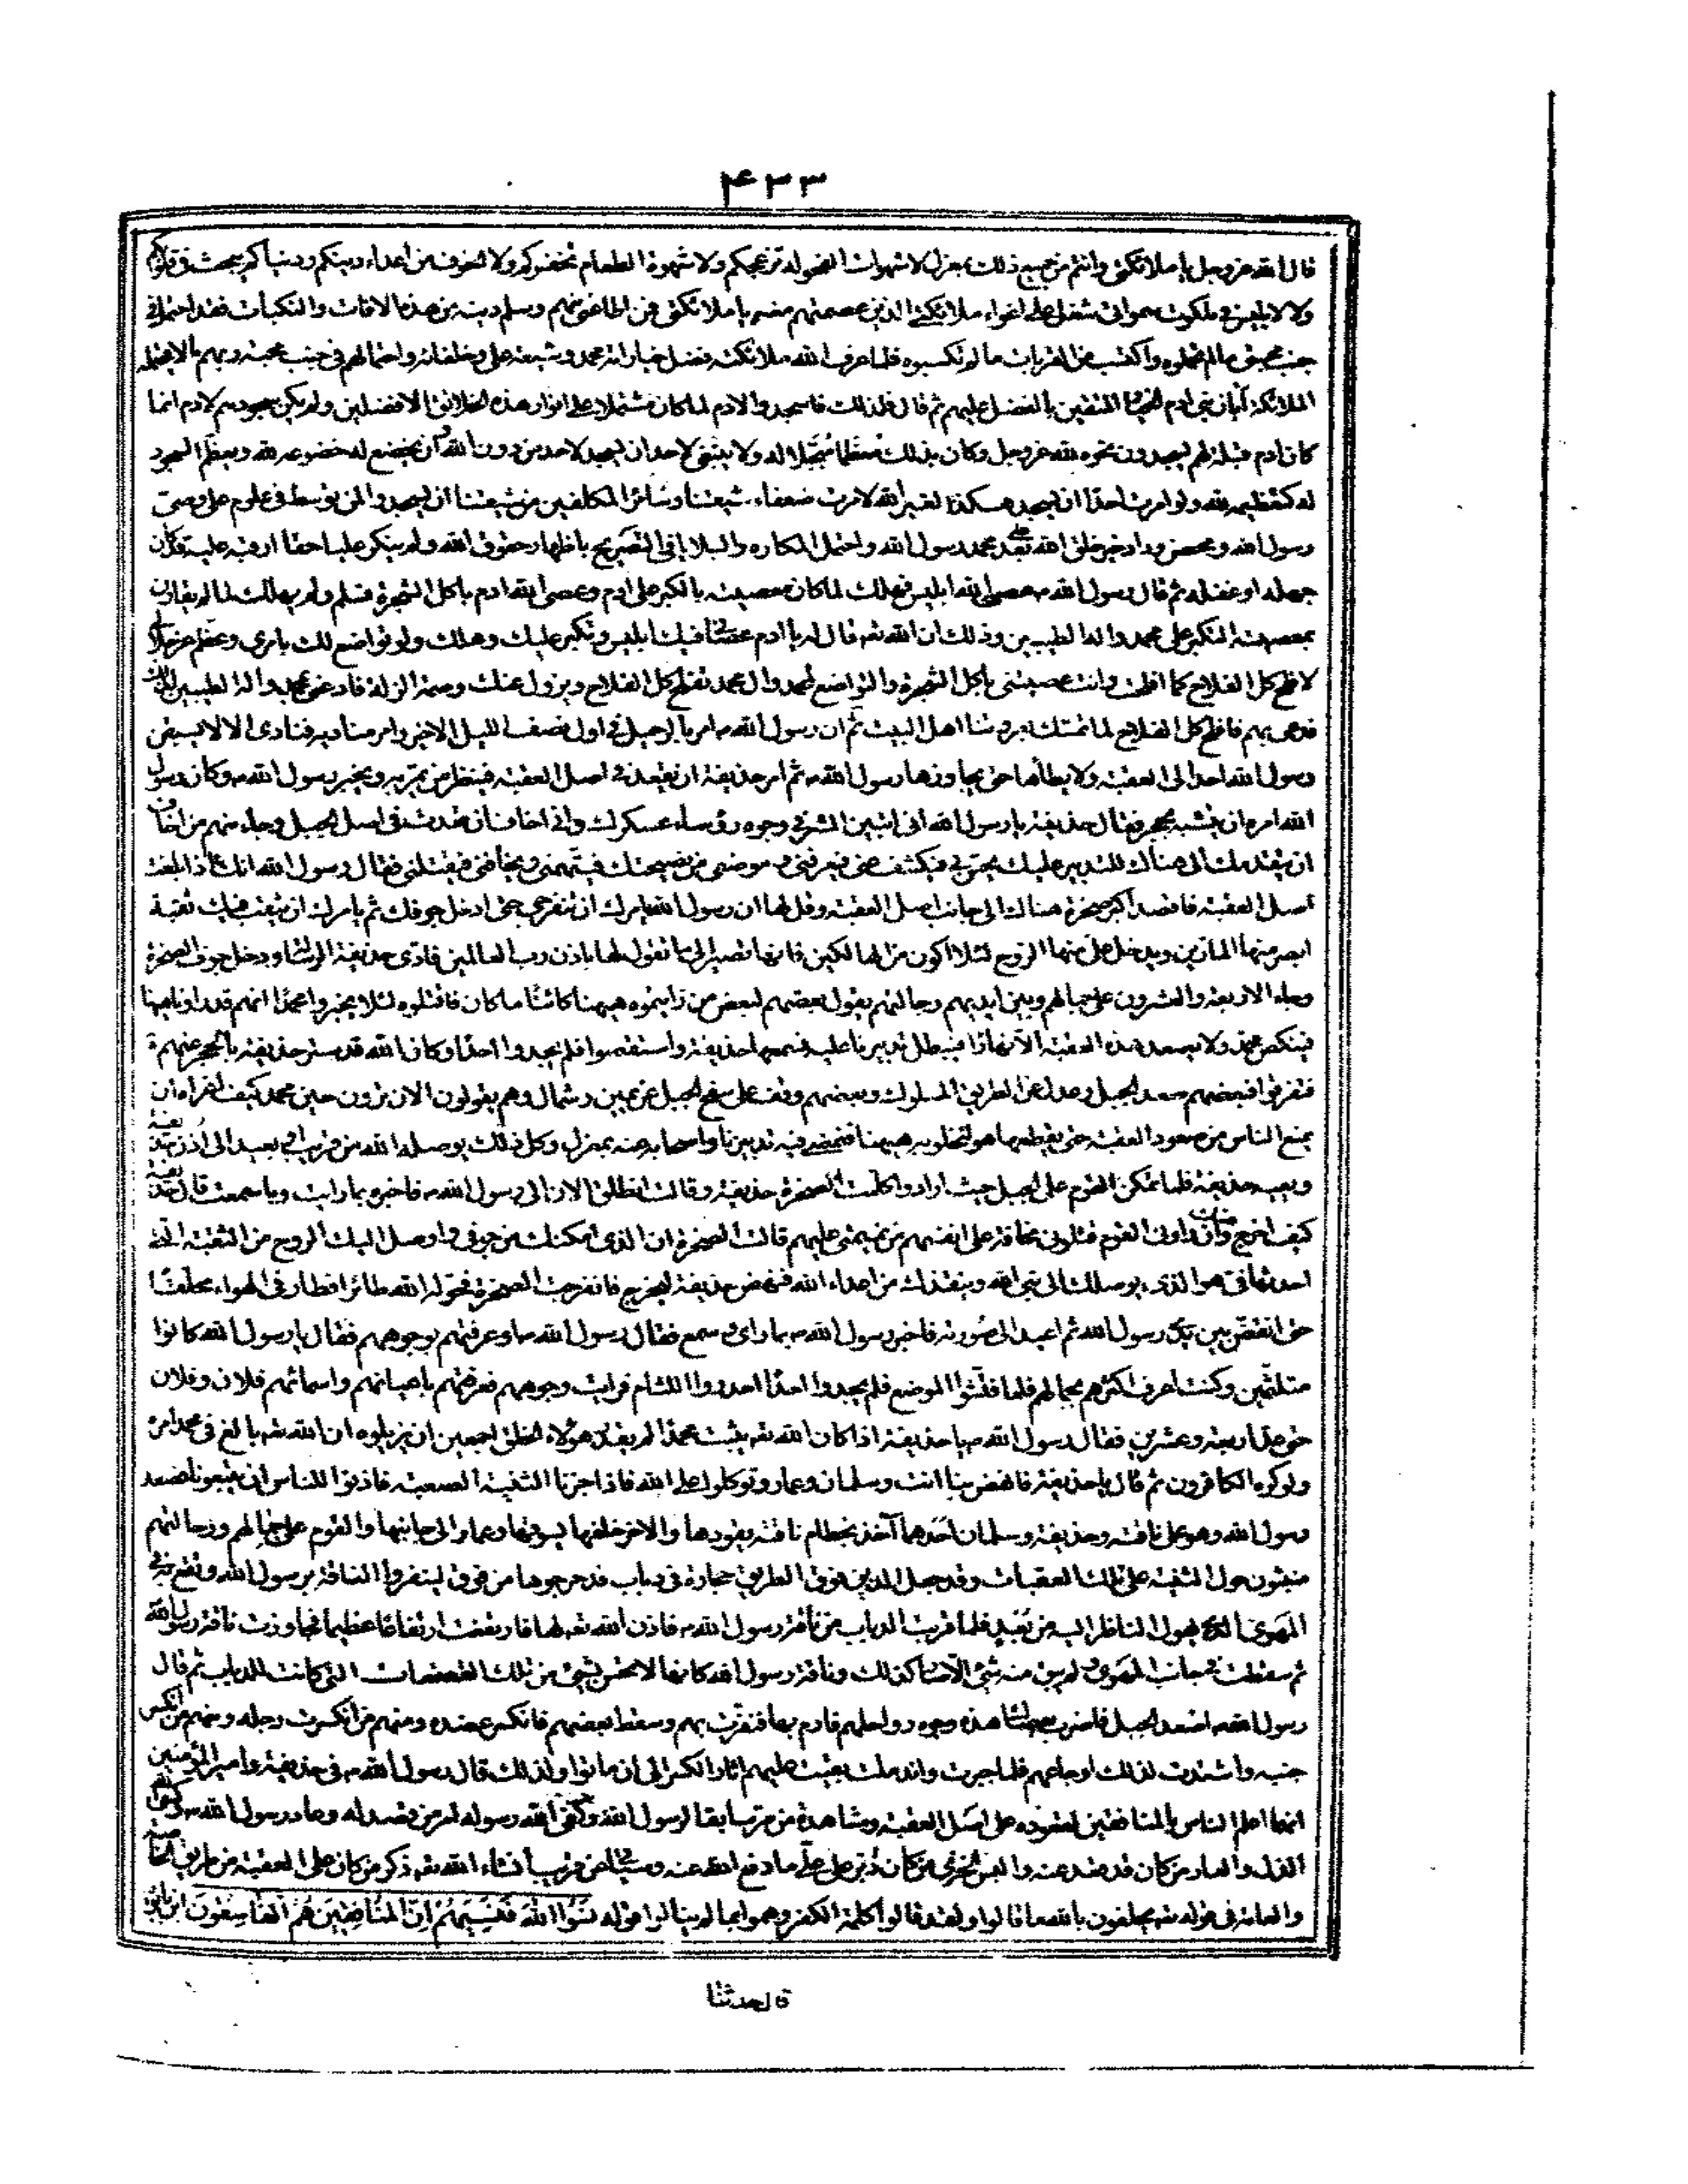 ۴۳۳
قال الله عز وجل يا ملائكتي وانتم من جميع ذلك بمعزل لا شهوات الفحولة تزعجكم ولا شهوة الطعام تحفزكم ولا الخوف من اعداء دينكم ودنياكم ينحب في قلوبكم
ولا لابليس في ملكوت سمواتي شغل على اغواء ملائكتي الذين عصمتهم منهم يا ملائكتي فمن اطاعني منهم وسلم دينه من هذه الافات والنكبات فقد احتمل في
جنب محبتي ما لم تحملوه واكتسب من القربات ما لم تكسبوه فلما عرف الله ملائكته فضل خيار امة محمد وشيعة علي وخلفائه واحتمالهم في جنب محبة ربهم ما لا يحتمله
الملائكة ابان بني ادم الخيار المتقين بالفضل عليهم ثم قال فلذلك فاسجدوا لادم لما كان مشتملا على انوار هذه الخلائق الافضلين ولم يكن سجودهم لادم انما
كان ادم قبلة لهم يسجدون نحوه لله عز وجل وكان بذلك معظما مبجلا له ولا ينبغي لاحد ان يسجد لاحد من دون الله وان يخضع له خضوعه لله ويعظم السجود
له كتعظيمه لله ولو امرت احدا ان يسجد هكذا لغير الله لامرت ضعفاء شيعتنا وسائر المكلفين من شيعتنا ان يسجدوا لمن توسط في علوم علي وصي
رسول الله ومحض وداد خير خلق الله علي بعد محمد رسول الله واحتمل المكاره والبلايا في التصريح باظهار حقوق الله ولم ينكر علي حقا ارقبه عليه قد كان
جهله او غفله ثم قال رسول الله ص عصى الله ابليس فهلك لما كان معصيته بالكبر على ادم وعصى الله ادم باكل الشجرة فسلم ولم يهلك لما لم يقارن
بمعصيته التكبر على محمد واله الطيبين وذلك ان الله تعالى قال له يا ادم عصاني فيك ابليس وتكبر عليك وهلك ولو تواضع لك بامري وعظم عز جلالي
لافلح كل الفلاح كما افلحت وانت عصيتني باكل الشجرة وبالتواضع لمحمد وال محمد تفلح كل الفلاح ويزول عنك وصمة الزلة فادعني بمحمد واله الطيبين لذلك
فدعى بهم فافلح كل الفلاح لما تمسك بعروتنا اهل البيت ثم ان رسول الله ص امر بالرحيل في اول نصف الليل الاخير وامر مناديه فنادى الا لا يسبقن
رسول الله احد الى العقبة ولا يطأها حتى يجاوزها رسول الله ص ثم امر حذيفة ان يقعد في اصل العقبة فينظر من يمر به ويخبر رسول الله ص وكان رسول
الله امره ان يتشبه بحجر فقال حذيفة يا رسول الله اني اتبين الشر في وجوه رؤساء عسكرك واني اخاف ان قعدت في اصل الجبل وجاء منهم من اخاف
ان يتقدمك الى هناك للتدبير عليك يحس بي فيكشف عني فيعرفني وموضعي من نصيحتك فيتهمني ويخافني فيقتلني فقال رسول الله انك اذا بلغت
اصل العقبة فاقصد اكبر صخرة هناك الى جانب اصل العقبة وقل لها ان رسول الله يامرك ان تنفرجي حتى ادخل جوفك ثم يامرك ان يثقب فيك ثقبة
ابصر منها المارين ويدخل علي منها الروح لئلا اكون من الهالكين فانها تصير الى ما تقول لها باذن رب العالمين فادى حذيفة الرسالة ودخل جوف الصخرة
وجاء الاربعة والعشرون على جمالهم وبين ايديهم رجالتهم يقول بعضهم لبعض من رايتموه هيهنا كائنا ما كان فاقتلوه لئلا يخبروا محمدا انهم قد راونا هيهنا
فينكص محمد ولا يصعد هذه العقبة الا نهارا فيبطل تدبيرنا عليه فسمعها حذيفة واستقصوا فلم يجدوا احدا وكان الله قد ستر حذيفة بالحجر عنهم
فتفرقوا فبعضهم صعد الجبل وعدل عن الطريق المسلوك وبعضهم وقف على سفح الجبل عن يمين وشمال وهم يقولون الان ترون حين محمد كيف اغراه ان
يمنع الناس من صعود العقبة حتى يقطعها هو لنخلو به هيهنا فنمضي فيه تدبيرنا واصحابه عنه بمعزل وكل ذلك يوصله الله من قريب او بعيد الى اذن حذيفة
ويعيه حذيفة فلما تمكن القوم على الجبل حيث ارادوا كلمت الصخرة حذيفة وقالت انطلق الان الى رسول الله ص فاخبره بما رايت وبما سمعت قال حذيفة
كيف اخرج عنك وان راوني القوم قتلوني مخافة على انفسهم من نميمتي عليهم قالت الصخرة ان الذي امكنك من جوفي واوصل اليك الروح من الثقبة التي
احدثها في هو الذي يوصلك الى نبي الله وينقذك من اعداء الله فنهض حذيفة ليخرج فانفرجت الصخرة فحوله الله طائرا فطار في الهواء محلقا
حتى انقض بين يدي رسول الله ثم اعيد الى صورته فاخبر رسول الله ص بما راى وسمع فقال رسول الله ص اوعرفتهم بوجوههم فقال يا رسول الله كانوا
متلثمين وكنت اعرف اكثرهم بجمالهم فلما فتشوا الموضع فلم يجدوا احدا احدروا اللثام فرايت وجوههم فعرفتهم باعيانهم واسمائهم فلان وفلان
حتى عد اربعة وعشرين فقال رسول الله ص يا حذيفة اذا كان الله تعالى يثبت محمدا لم يقدر هؤلاء الخلق اجمعين ان يزيلوه ان الله تعالى بالغ في محمد امره
ولو كره الكافرون ثم قال يا حذيفة فانهض بنا انت وسلمان وعمار وتوكلوا على الله فاذا جزنا الثنية الصعبة فاذنوا للناس ان يتبعونا فصعد
رسول الله وهو على ناقته وحذيفة وسلمان احدهما آخذ بخطام ناقته يقودها والاخر خلفها يسوقها وعمار الى جانبها والقوم على جمالهم ورجالتهم
منبثون حول الثنية على تلك العقبات وقد جعل الذين فوق الطريق حجارة في دباب فدحرجوها من فوق لينفروا الناقة برسول الله وتقع به في
المهوى الذي يهول الناظر اليه من بعيد فلما قربت الدباب من ناقة رسول الله ص فاذن الله تعالى لها فارتفعت ارتفاعا عظيما فجاوزت ناقة رسول الله
ثم سقطت في جانب المهوى ولم يبق منه شيء الا صار كذلك وناقة رسول الله كانها لا تحس بشيء من تلك القعقعات التي كانت للدباب ثم قال
رسول الله ص لعمار اصعد الجبل فاضرب بعصاك هذه وجوه رواحلهم فارم بها فنفرت بهم وسقط بعضهم فانكسر عضده ومنهم من انكسرت رجله ومنهم من انكسر
جنبه واشتدت لذلك اوجاعهم فلما جبرت واندملت بقيت عليهم اثار الكسر الى ان ماتوا ولذلك قال رسول الله ص في حذيفة وامير المؤمنين
انهما اعلم الناس بالمنافقين لقعوده على اصل العقبة ومشاهدة من مر سابقا لرسول الله وكفى الله رسوله امر من قصد له وعاد رسول الله ص
الذل والعار من كان قد قعد عنه والبس الخزي من كان دبر على علي ما دفع الله عنه وسياتي عن قريب انشاء الله تعالى ذكر من كان على العقبة من طريق الخاصة
والعامة في قوله تعالى يحلفون بالله ما قالوا ولقد قالوا كلمة الكفر وهموا بما لم ينالوا قوله نسوا الله فنسيهم ان المنافقين هم الفاسقون ابن بابويه
قال حدثنا